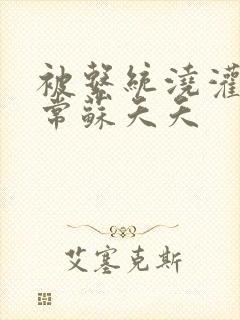 被繫統澆灌
常蘇夭夭
艾塞克斯